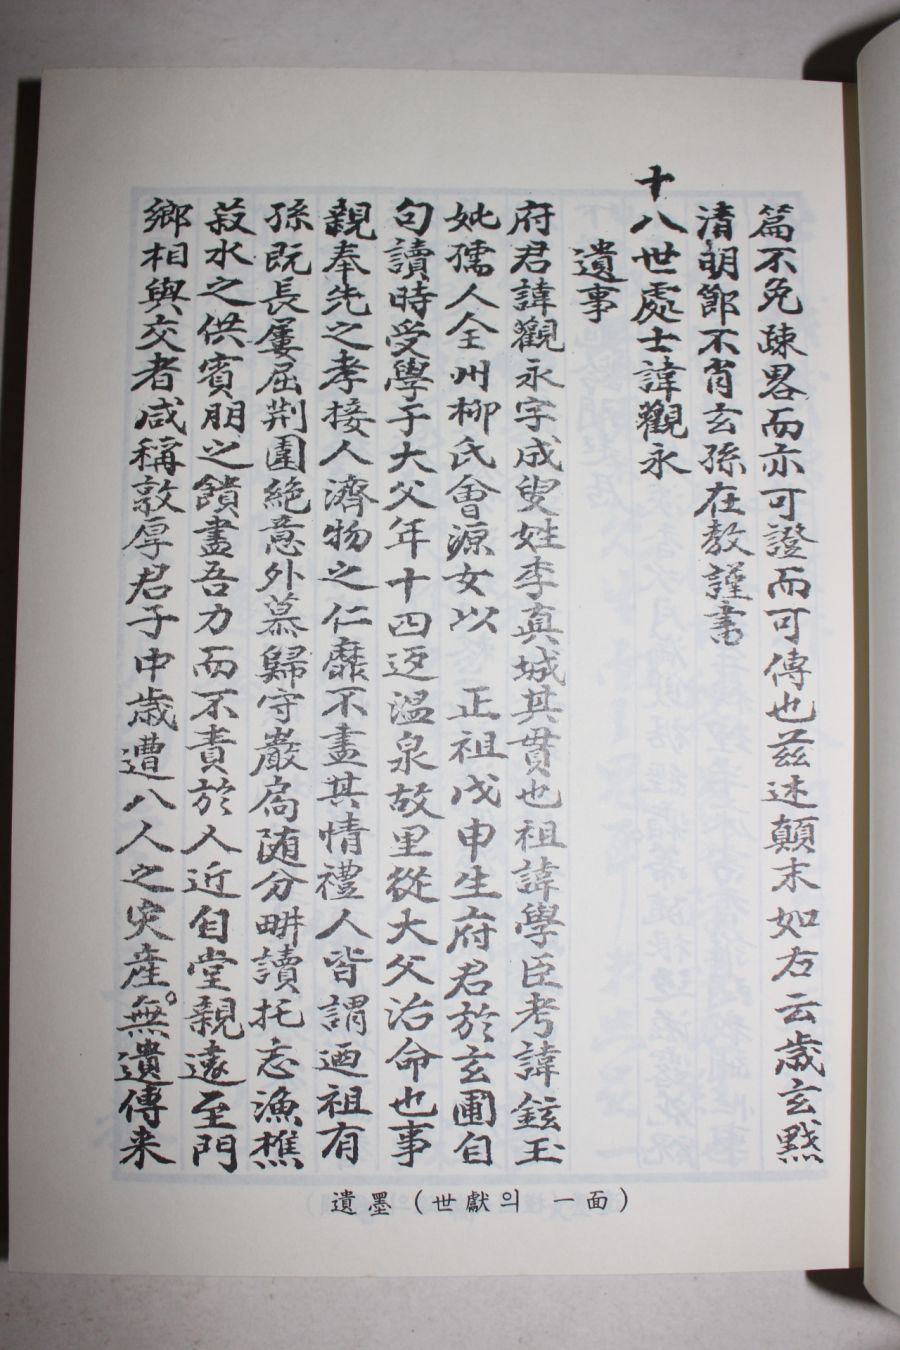 篇不免疎畧而亦可證而可傳也茲述顛末如右云歲玄黓
清明節不肖玄孫在敎謹書
十八世處士諱觀永
遺事
府君諱觀永字成叟姓李真城其貫也祖諱學臣考諱鉉玉
妣孺人全州柳氏會源女以 正祖戊申生府君於玄圃自
句讀時受學于大父年十四返溫泉故里從大父治命也事
親奉先之孝接人濟物之仁靡不盡其情禮人皆謂迺祖有
孫既長屢屈荆圍絶意外慕歸守巖扄随分畊讀托志漁樵
菽水之供賓朋之饋盡吾力而不責於人近自堂親遠至門
鄉相與交者咸稱敦厚君子中歲遭八人之灾産無遺傳来
遺墨(世獻의 一面)